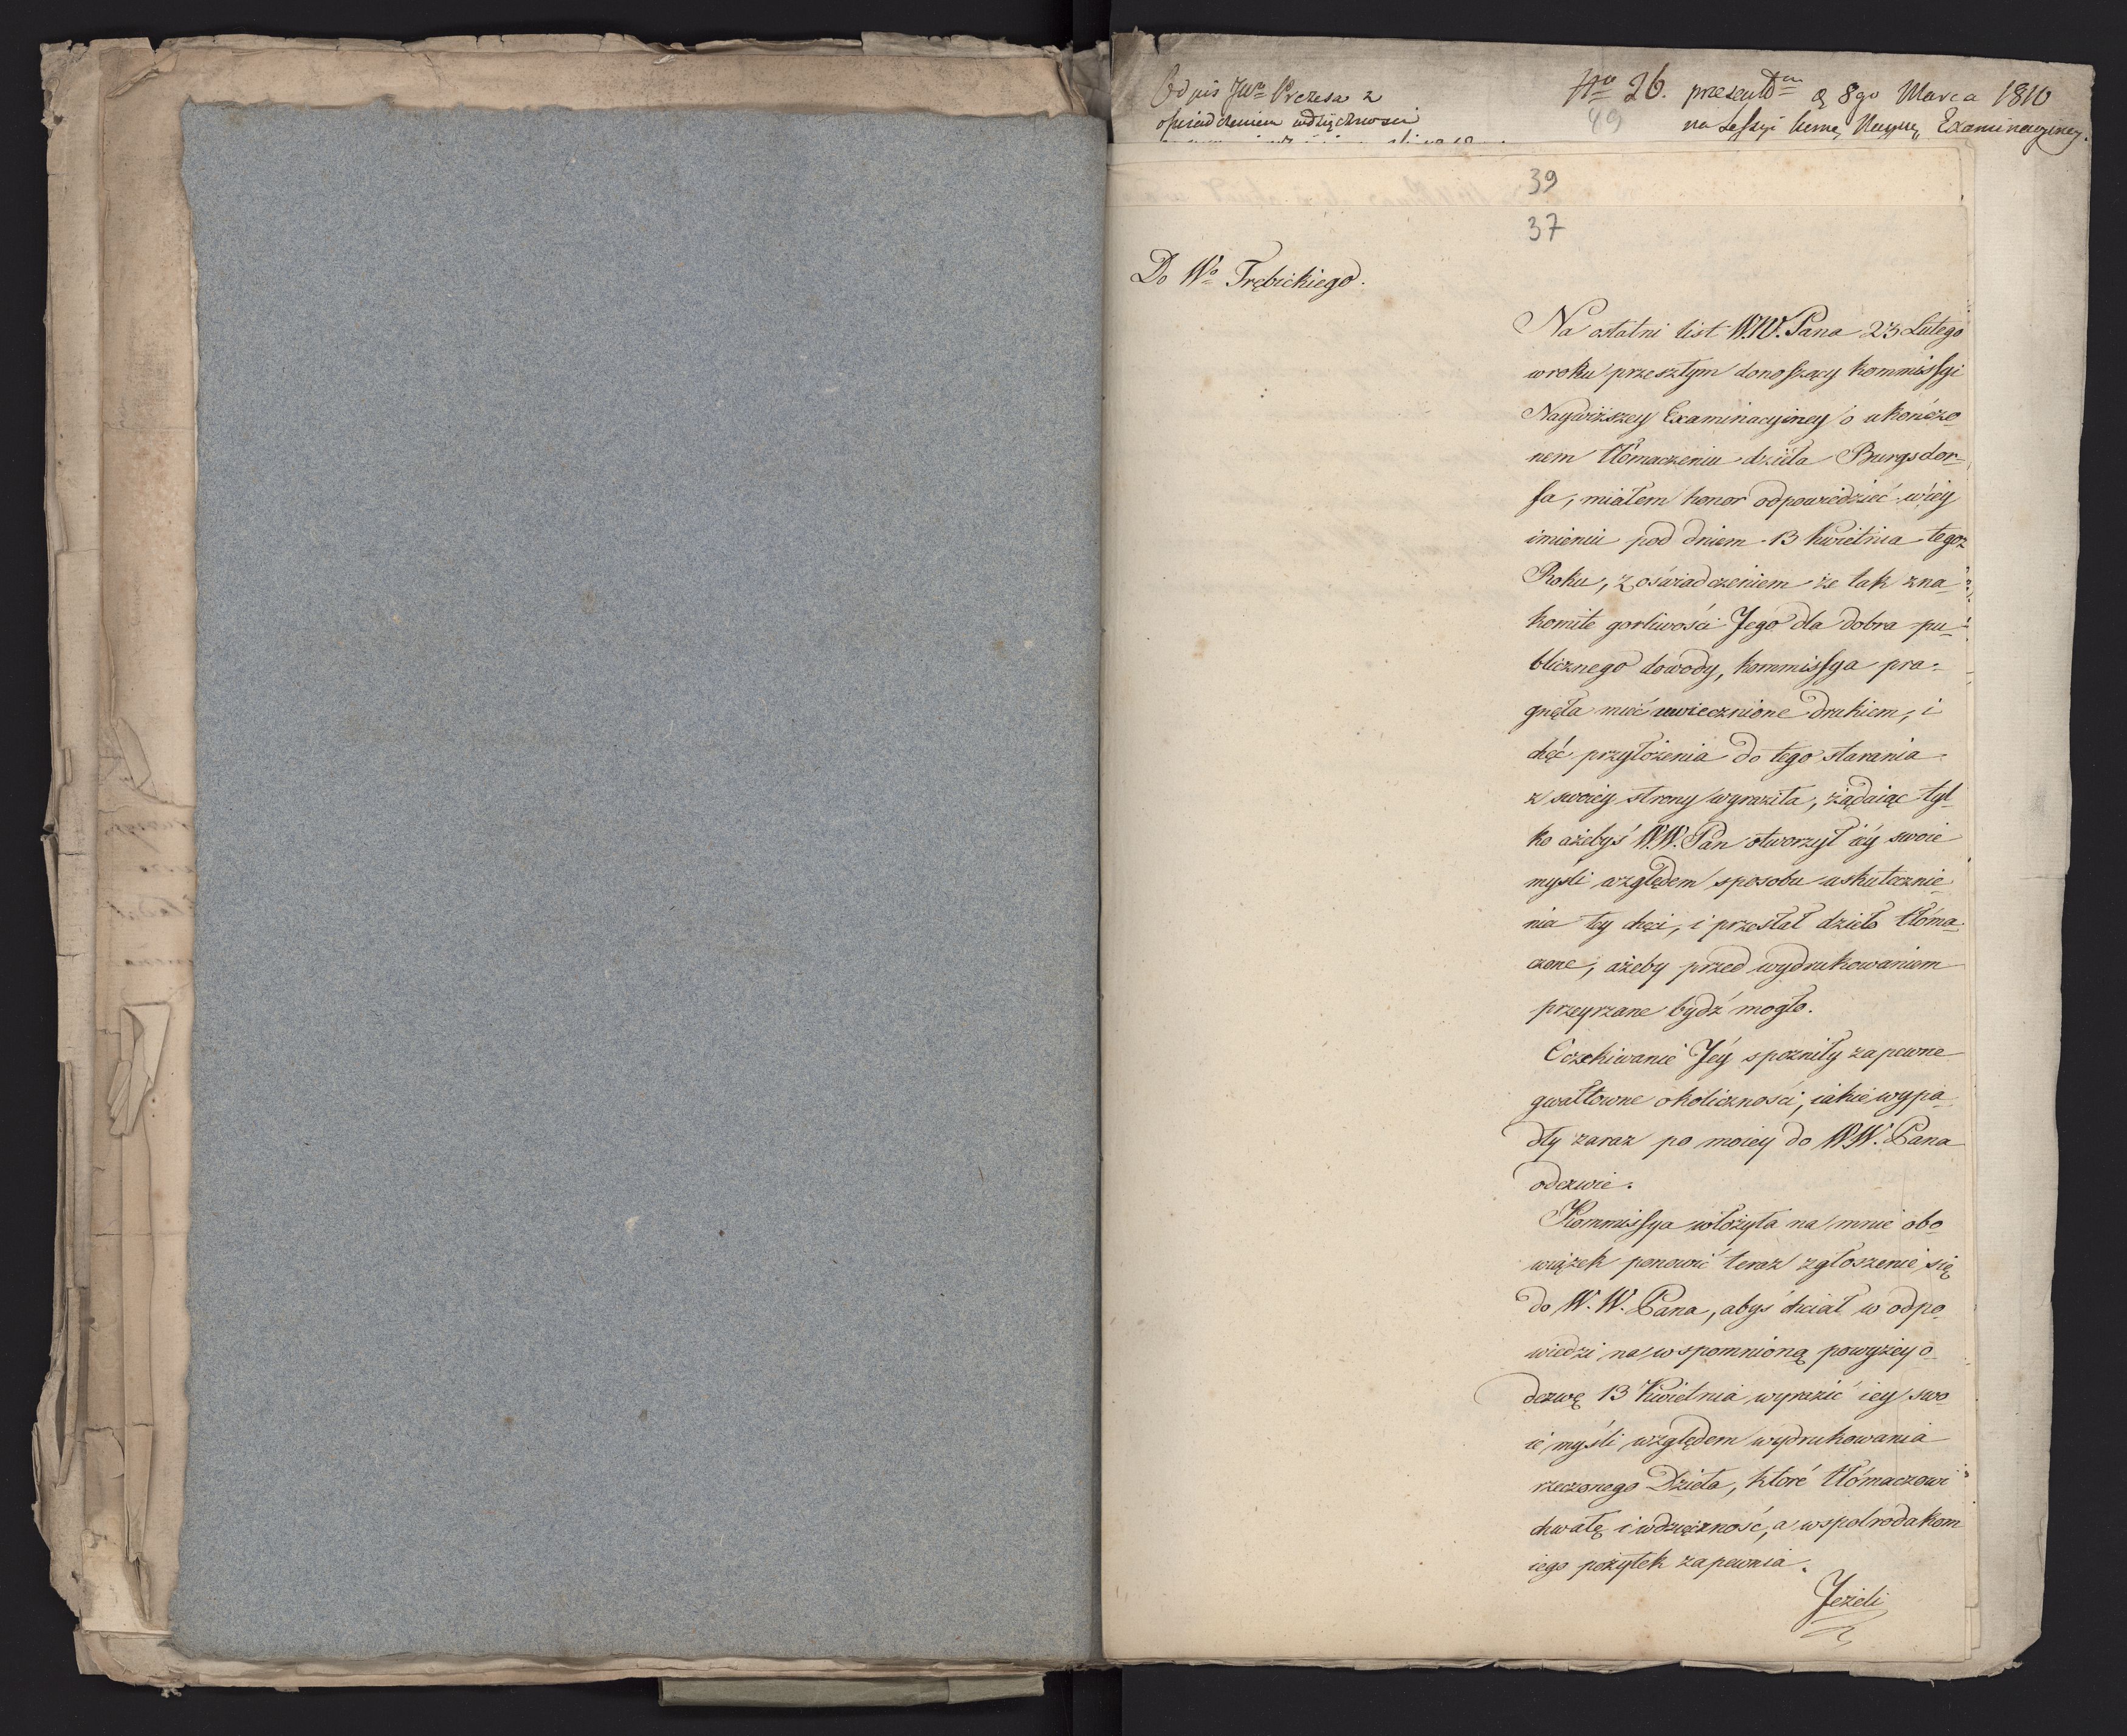 Odpis JWo Prezesa z
oświadczeniem wdzięczności
Nro 26. presentdm d. 8go Marca 1810
49
na Sessyi Examinacyiney.
39
37
Do Wo Trębickiego.
Na ostatni list W.W. Pana 23 Lutego
w roku przeszłym donoszący Kommissyi
Naywiższey Examinacyiney o ukończo-
nem tłómaczeniu dzieła Burgsdor-
fa, miałem honor odpowiedzieć w iey
imieniu pod dniem 13 Kwietnia tegoż
Roku, z oświadczeniem że tak zna-
komite gorliwości Jego dla dobra pu-
blicznego dowody, Kommissya pra-
gnęła mieć uwiecznione drukiem, i
chęć przyłożenia do tego starania
z swoiey strony wyraziła, żądaiąc tyl-
ko ażebyś W.W. Pan otworzył iéy swoie
mysli względem sposobu uskutecznie-
nia tey chęci, i przesłał dzieło tłóma-
czone, ażeby przed wydrukowaniem
przeyrzane bydź mogło.
Oczekiwanie Jéy spozniły zapewne
gwałtowne okoliczności, iakie wypa-
dły zaraz po moiey do W.W. Pana
odezwie.
Kommissya włożyła na mnie obo-
wiązek ponowić teraz zgłoszenie się
do W. W. Pana, abyś chciał w odpo-
wiedzi na wspomnioną powyżey o-
dezwę 13 Kwietnia wyrazić iey swo-
ie myśli względem wydrukowania
rzeczonego Dzieła, któré tłómaczowi
chwałę i wdzięczność, a wspolrodakom
iego pożytek zapewnia.
Jeżeli